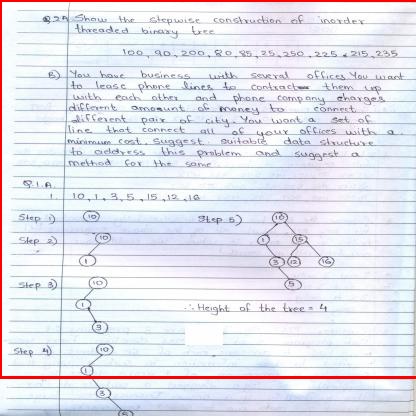 Q.2A Show the stepwise construction of inorder
threaded binary tree
100, 90, 200, 80, 85, 25, 250, 225, 215, 235
B) You have business with several offices. You want
to lease phone lines to contract them up
with each other and phone company charges
different amount of money to connect
different pair of city. You want a set of
line that connect all of your offices with a
minimum cost. suggest suitable data structure
to address this problem and suggest a
method for the same
Q.1.A.
1. 10, 1, 3, 5, 15, 12, 16
Step 1) 10
Step 2) 10
1
Step 3) 10
1
3
Step 4) 10
1
3
5
Step 5) 10
1 15
3 12 16
5
∴ Height of the tree = 4